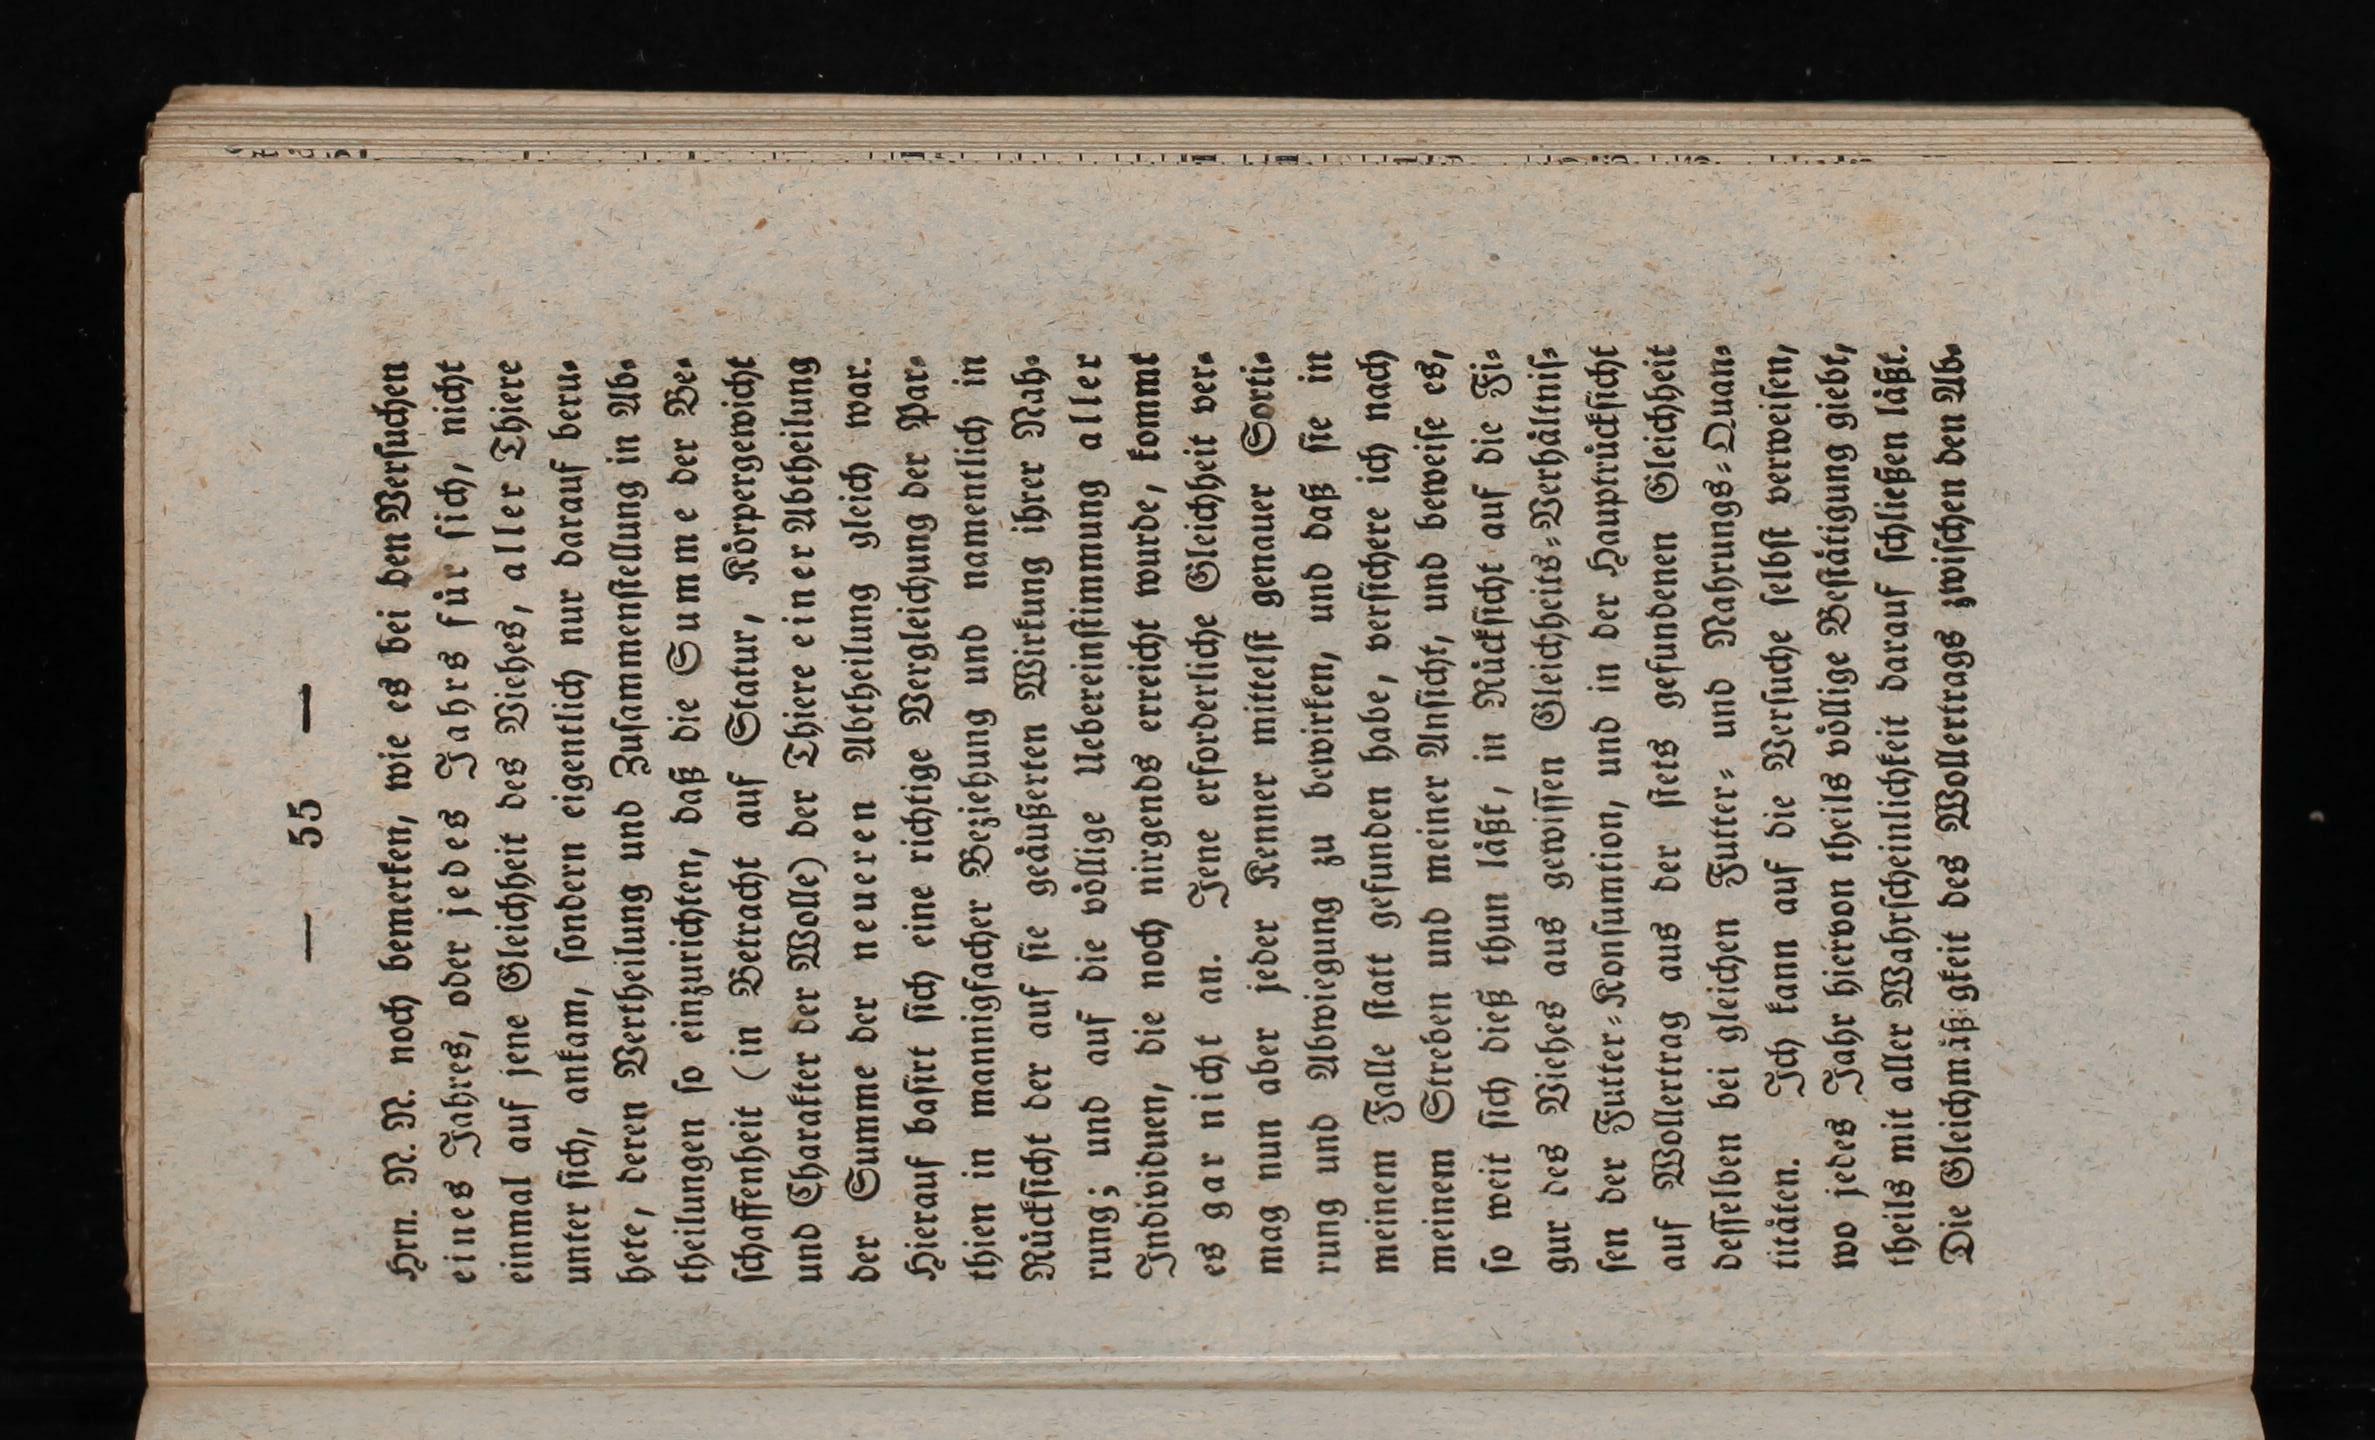 — 55 —
Hrn. N. N. noch bemerken, wie es bei den Versuchen
eines Jahres, oder jedes Jahrs für sich, nicht
einmal auf jene Gleichheit des Viehes, aller Thiere
unter sich, ankam, sondern eigentlich nur darauf beru-
hete, deren Vertheilung und Zusammenstellung in Ab-
theilungen so einzurichten, daß die Summe der Be-
schaffenheit (in Betracht auf Statur, Körpergewicht
und Charakter der Wolle) der Thiere einer Abtheilung
der Summe der neueren Abtheilung gleich war.
Hierauf basirt sich eine richtige Vergleichung der Par-
thien in mannigfacher Beziehung und namentlich in
Rücksicht der auf sie geäußerten Wirkung ihrer Nah-
rung; und auf die völlige Uebereinstimmung aller
Individuen, die noch nirgends erreicht wurde, kommt
es gar nicht an. Jene erforderliche Gleichheit ver-
mag nun aber jeder Kenner mittelst genauer Sorti-
rung und Abwiegung zu bewirken, und daß sie in
meinem Falle statt gefunden habe, versichere ich nach
meinem Streben und meiner Ansicht, und beweise es,
so weit sich dieß thun läßt, in Rücksicht auf die Fi-
gur des Viehes aus gewissen Gleichheits-Verhältnis-
sen der Futter-Konsumtion, und in der Hauptrücksicht
auf Wollertrag aus der stets gefundenen Gleichheit
desselben bei gleichen Futter- und Nahrungs-Quan-
titäten. Ich kann auf die Versuche selbst verweisen,
wo jedes Jahr hiervon theils völlige Bestätigung giebt,
theils mit aller Wahrscheinlichkeit darauf schließen läßt.
Die Gleichmäßigkeit des Wollertrags zwischen den Ab-